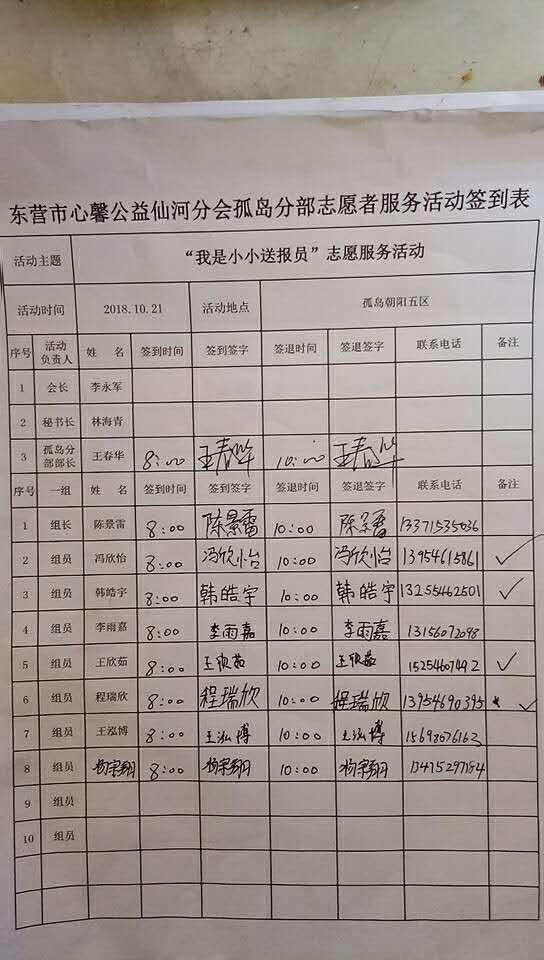 东营市心馨公益仙河分会孤岛分部志愿者服务活动签到表
活动主题 “我是小小送报员”志愿服务活动
活动时间 2018.10.21 活动地点 孤岛朝阳五区
序号 活动负责人 姓 名 签到时间 签到签字 签退时间 签退签字 联系电话 备注
1 会长 李永军
2 秘书长 林海青
3 孤岛分部部长 王春华 8:00 王春华 10:00 王春华
序号 一组 姓 名 签到时间 签到签字 签退时间 签退签字 联系电话 备注
1 组长 陈景雷 8:00 陈景雷 10:00 陈景雷 13371535036
2 组员 冯欣怡 8:00 冯欣怡 10:00 冯欣怡 13954615861 ✓
3 组员 韩皓宇 8:00 韩皓宇 10:00 韩皓宇 13255462501 ✓
4 组员 李雨嘉 8:00 李雨嘉 10:00 李雨嘉 13156072098
5 组员 王欣茹 8:00 王欣茹 10:00 王欣茹 15254607492 ✓
6 组员 程瑞欣 8:00 程瑞欣 10:00 程瑞欣 13954690395 ✓
7 组员 王泓博 8:00 王泓博 10:00 王泓博 15698076162
8 组员 杨宗翔 8:00 杨宗翔 10:00 杨宗翔 13475297184
9 组员
10 组员